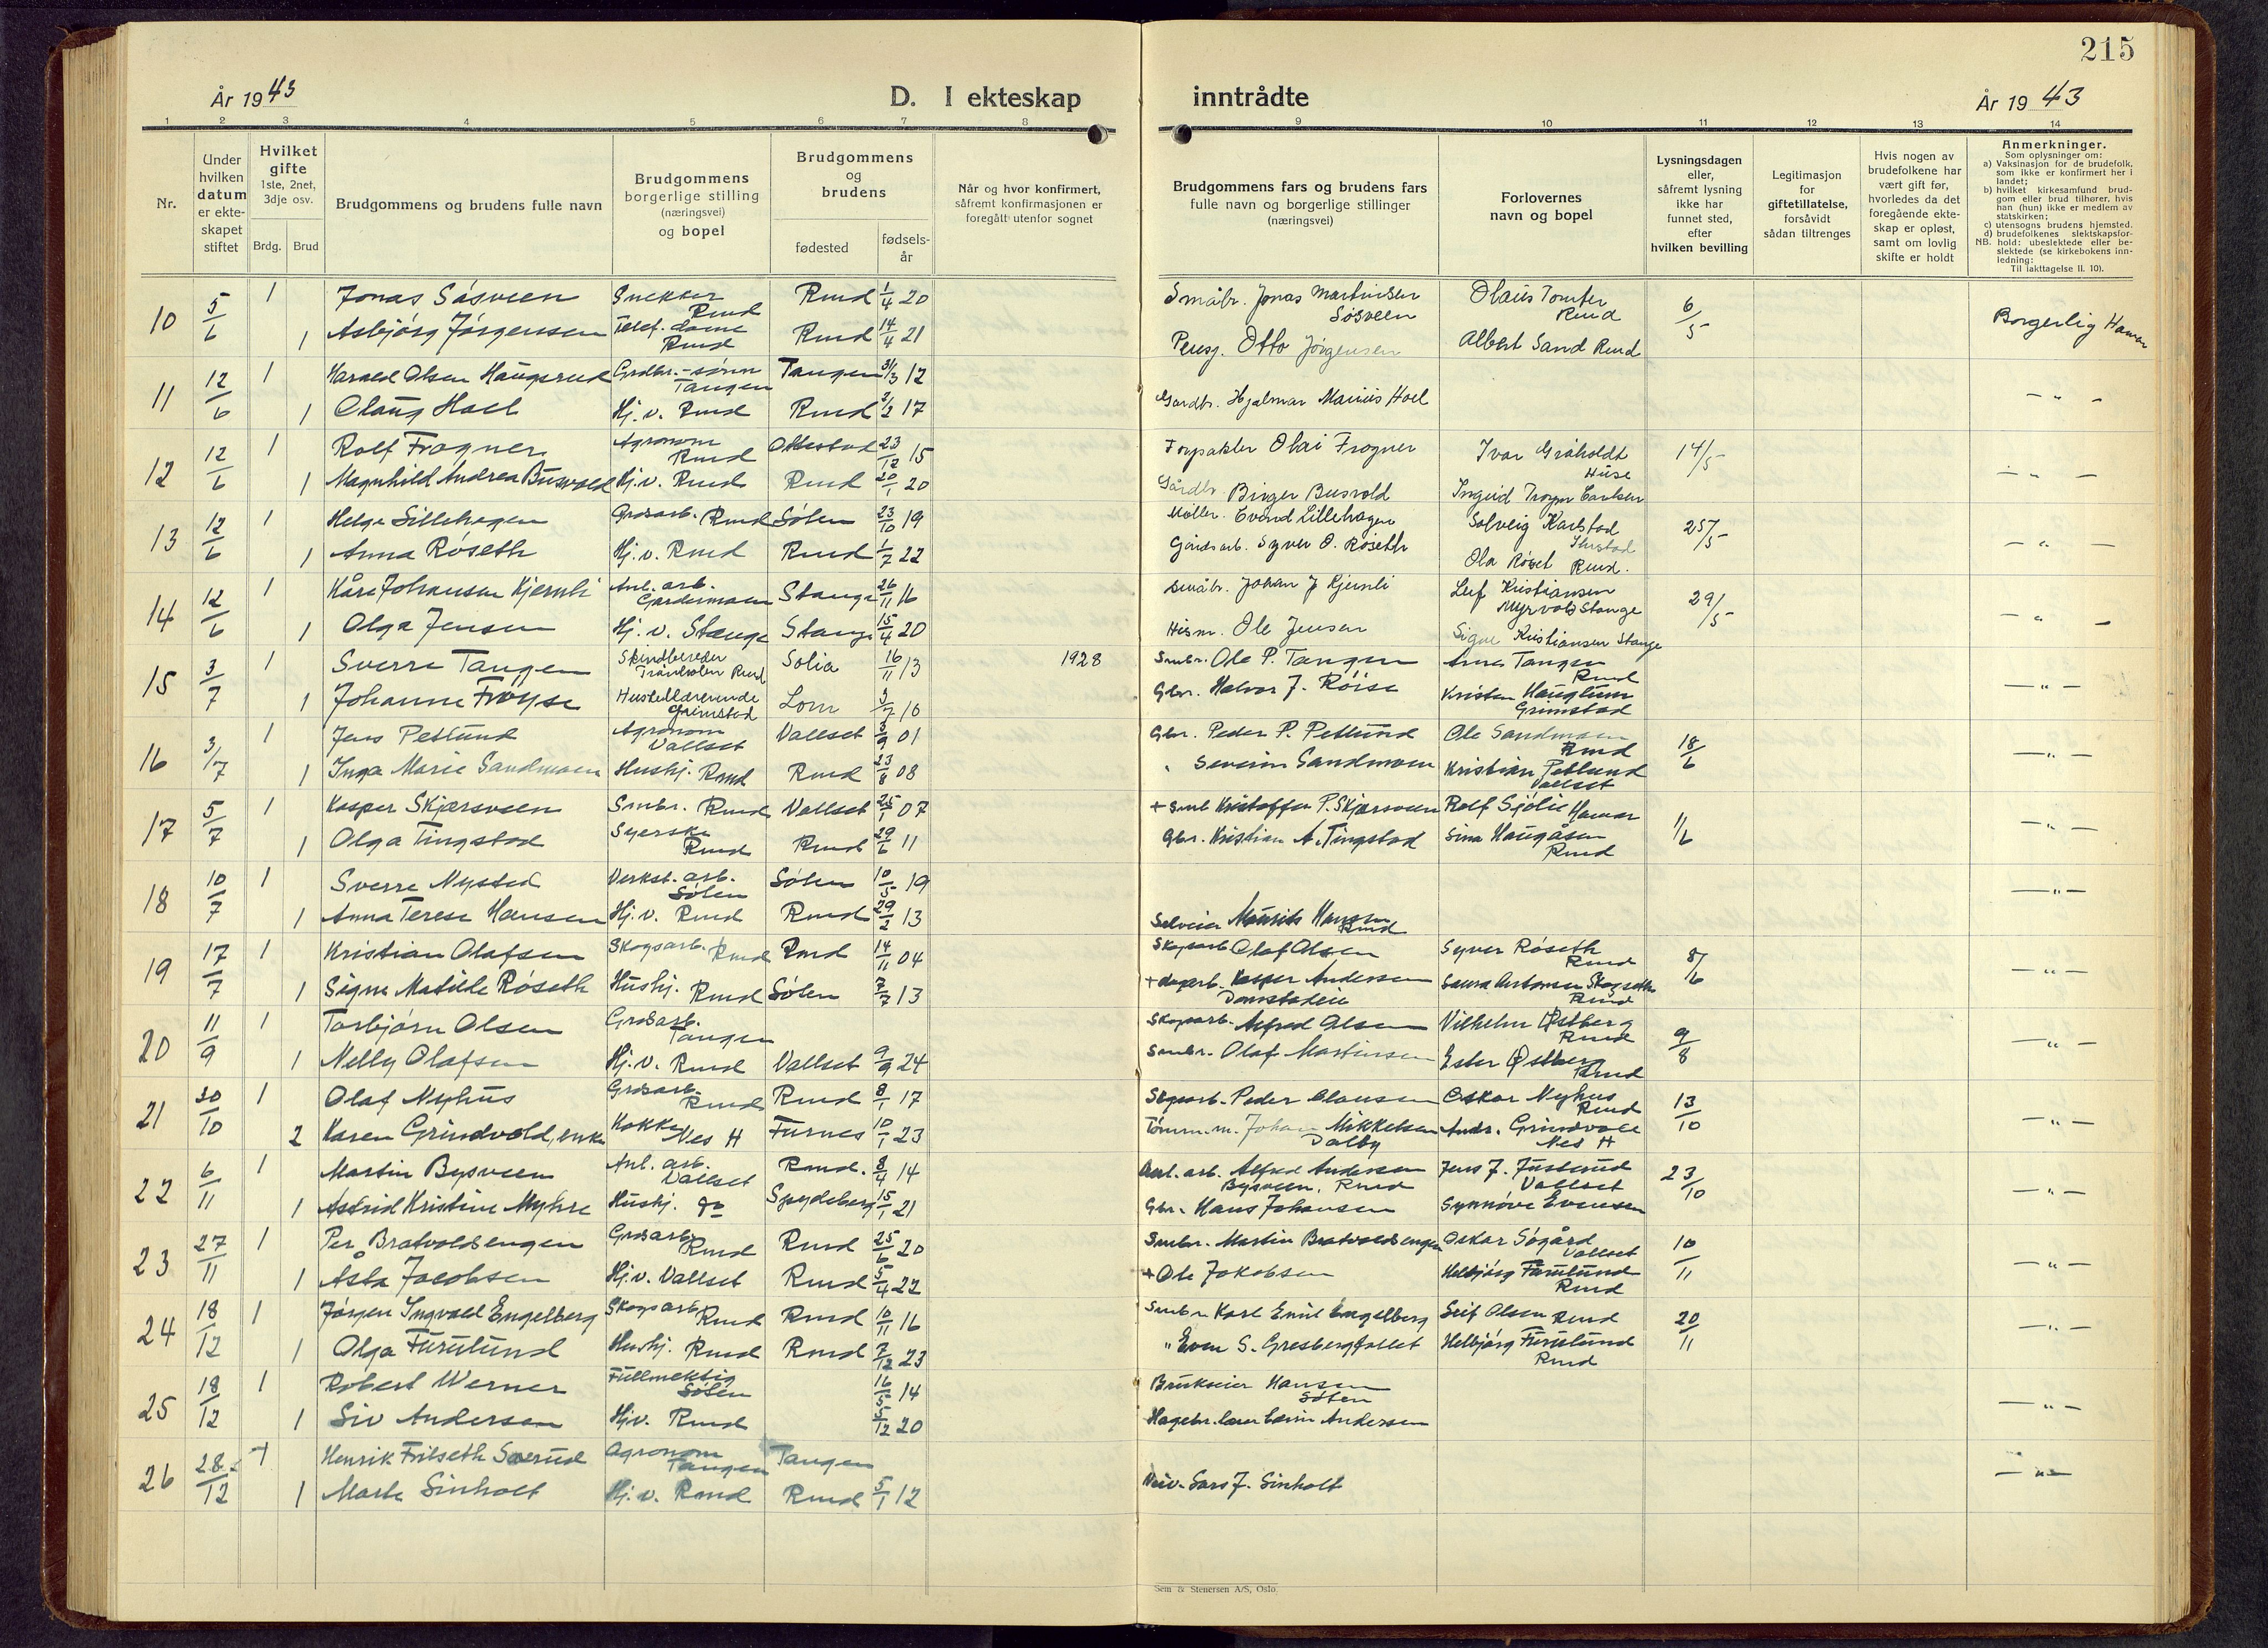 215
År 1943
D. I ekteskap
inntrådte
År 1943
1 2 3 4 5 6 7 8 9 10 11 12 13 14
Nr.
Under
hvilken
datum
er ekte-
skapet
stiftet
Hvilket
gifte
1ste, 2net,
3dje osv.
Brdg. Brud
Brudgommens og brudens fulle navn
Brudgommens
borgerlige stilling
(næringsvei)
og bopel
Brudgommens
og
brudens
fødested
fødsels-
år
Når og hvor konfirmert,
såfremt konfirmasjonen er
foregått utenfor sognet
Brudgommens fars og brudens fars
fulle navn og borgerlige stillinger
(næringsvei)
Forlovernes
navn og bopel
Lysningsdagen
eller,
såfremt lysning
ikke har
funnet sted,
efter
hvilken bevilling
Legitimasjon
for
giftetillatelse,
forsåvidt
sådan tiltrenges
Hvis nogen av
brudefolkene har
vært gift før,
hvorledes da det
foregående ekte-
skap er opløst,
samt om lovlig
skifte er holdt
Anmerkninger.
Som oplysninger om:
a) Vaksinasjon for de brudefolk,
som ikke er konfirmert her i
landet;
b) hvilket kirkesamfund brud-
gom eller brud tilhører, hvis
han (hun) ikke er medlem av
statskirken;
c) utensogns brudens hjemsted.
d) brudefolkenes slektskapsfor-
NB. hold: ubeslektede eller be-
slektede (se kirkebokens inn-
ledning:
Til iakttagelse II. 10).
10 5/6 1 Jonas Søsveen Snekker Rmd Rmd 1/4 20 Småbr. Jonas Martinsen Søsveen Olaus Tomter Rmd 6/5 Borgerlig Hamar
1 Asbjørg Jørgensen Telef. dame Rmd Rmd 14/4 21 Pensj. Otto Jørgensen Albert Sand Rmd
11 12/6 1 Harald Olsen Haugsrud Grdbr.-sønn Tangen Tangen 31/3 12 - " -
1 Olaug Hoel Hj.v. Rmd Rmd 2/2 17 Gardbr. Hjalmar Marius Hoel
12 12/6 1 Rolf Frogner Agronom Rmd Ottestad 23/12 15 Forpakter Olai Frogner Ivar Gråholdt Huse 14/5 - " -
1 Magnhild Andrea Busvold Hj.v. Rmd Rmd 20/1 20 Gårdbr. Birger Busvold Ingrid
13 12/6 1 Helge Lillehagen Grdsarb. Rmd Sølen 23/10 19 Møller. Evend Lillehagen Solveig Karlstad 25/5 - " -
1 Anna Røseth Hj.v. Rmd Rmd 1/7 22 Gårdsarb. Syver O. Røseth Ola Røset Rmd.
14 12/6 1 Kåre Johansen Kjernli Anl. arb. Gardermoen Stange 26/11 16 Småbr. Johan J Kjernli Leif Kristiansen Myrvold Stange 29/5 - " -
1 Olga Jensen Hj.v. Stange Stange 15/4 20 Ole Jensen Signe Kristiansen Stange
15 3/7 1 Sverre Tangen Skindbereder Rmd Solia 16/11 13 1928 Smbr. Ole P. Tangen Tangen Rmd - " -
1 Johanne Frøyse Grimstad Lom Gbr. Halvor J. Røise Kristen Hauglum Grimstad
16 3/7 1 Jens Petlund Agronom Vallset Vallset 3/9 01 Gbr. Peder P. Petlund Ole Sandmoen Rmd 18/6 - " -
1 Inga Marie Sandmoen Hushj. Rmd Rmd 23/6 08 Severin Sandmoen Kristian Petlund Vallset
17 5/7 1 Kasper Skjærsveen Smbr. Rmd Vallset 25/1 07 + Smb Kristoffer P. Skjærsveen Rolf Sjølie Hamar 11/6 - " -
1 Olga Tingstad Syerske Rmd Rmd 29/6 11 Gbr. Kristian A. Tingstad Sina Haugåsen Rmd
18 10/7 1 Sverre Nysted Verkst. arb. Sølen Sølen 10/5 19 - " -
1 Anna Terese Hansen Hj.v. Rmd Rmd 29/2 13 Selveier Maurits Hansen Rmd
19 17/7 1 Kristian Olafsen Skogsarb. Rmd Rmd 14/11 04 Skogsarb Olaf Olsen Syver Røseth Rmd 8/6 - " -
1 Signe Matilde Røseth Hushj. Rmd Sølen 7/7 13 + Kasper Andersen Rmd
20 11/9 1 Torbjørn Olsen Grdsarb. Tangen Skogsarb. Alfred Olsen Vilhelm Østberg Rmd 9/8 - " -
1 Nelly Olafsen Hj.v. Rmd Vallset 9/9 24 Smbr. Olaf Martinsen Ester Østberg Rmd
21 30/10 1 Olaf Nyhus Grdsarb Rmd Rmd 8/1 17 Skogsarb. Peder Clausen Oskar Nyhus Rmd 13/10 - " -
2 Karen Grindvold, enke Kokke Nes H Furnes 10/1 23 Tømm.m. Johan Mikkelsen Dalby Andr. Grindvold Nes H
22 6/11 1 Martin Bysveen Anl. arb. Vallset Rmd. 8/4 14 Anl. arb. Alfred Andersen Bysveen, Rmd Jens J. Vallset 23/10 - " -
1 Astrid Kristine Myhre Hushj. do Spydeberg 15/1 21 Gbr. Hans Johansen Synnøve Evensen
23 27/11 1 Per Bratvoldsengen Grdsarb. Rmd Rmd 25/6 20 Smbr. Martin Bratvoldsengen Oskar Søgård Vallset 10/11 - " -
1 Åsta Jacobsen Hj.v. Vallset Rmd 5/4 22 + Ole Jakobsen Helbjørg Furulund Rmd
24 18/12 1 Jørgen Ingvald Engelberg Skogsarb Rmd Rmd 10/11 16 Smbr. Karl Emil Engelberg Leif Olsen Rmd 20/11 - " -
1 Olga Furulund Hushj. Rmd Rmd 7/12 23 " Even S. Gresbergfallet Helbjørg Furulund Rmd
25 18/12 1 Robert Werner Fullmektig Sølen 16/5 14 Brukseier Hansen Sølen - " -
1 Siv Andersen Hj.v. Rmd 5/12 20 Andersen
26 28/12 1 Henrik Frilseth Saerud Agronom Tangen Tangen - " -
1 Marte Sinholt Hj.v. Rmd Rmd 5/1 12 Lars J. Sinholt
Sem & Stenersen A/S, Oslo.